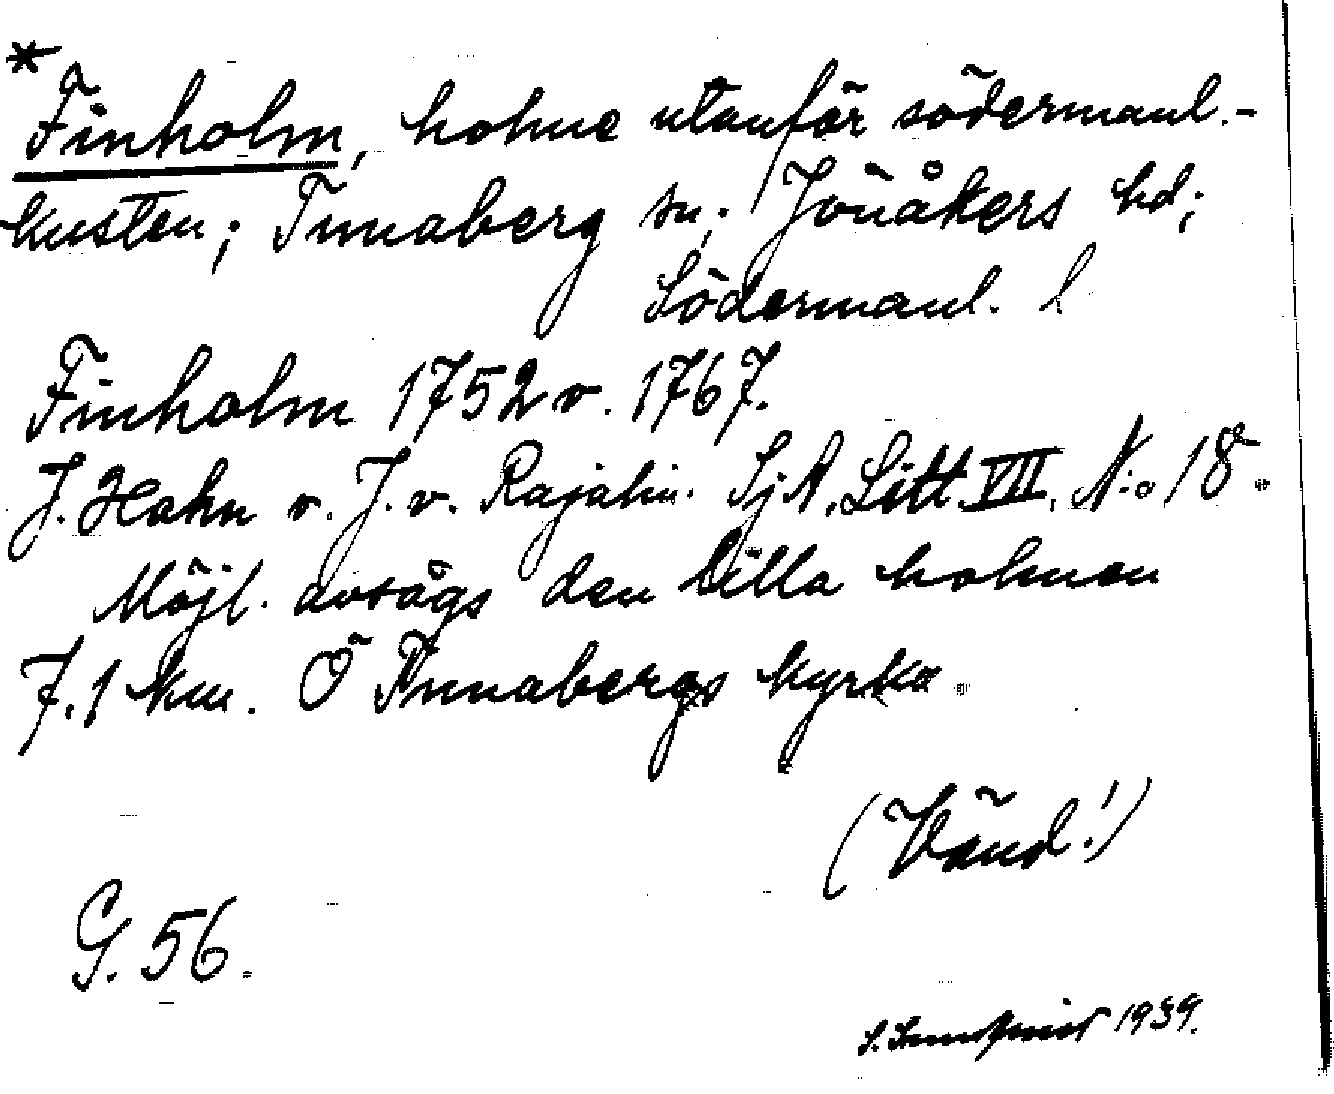 * Finholm, holme utanför södermanl.-
kusten; Tunaberg sn; Jönåkers hd;
Södermanl. l
Finholm 1752 o. 1767.
J. Hahn o. J. v. Rajalin. SjA. Litt. VII. N:o 18.
Möjl. avsågs den lilla holmen
7.1 km. Ö Tunabergs kyrka.
(Vänd!)
G. 56.
1939.